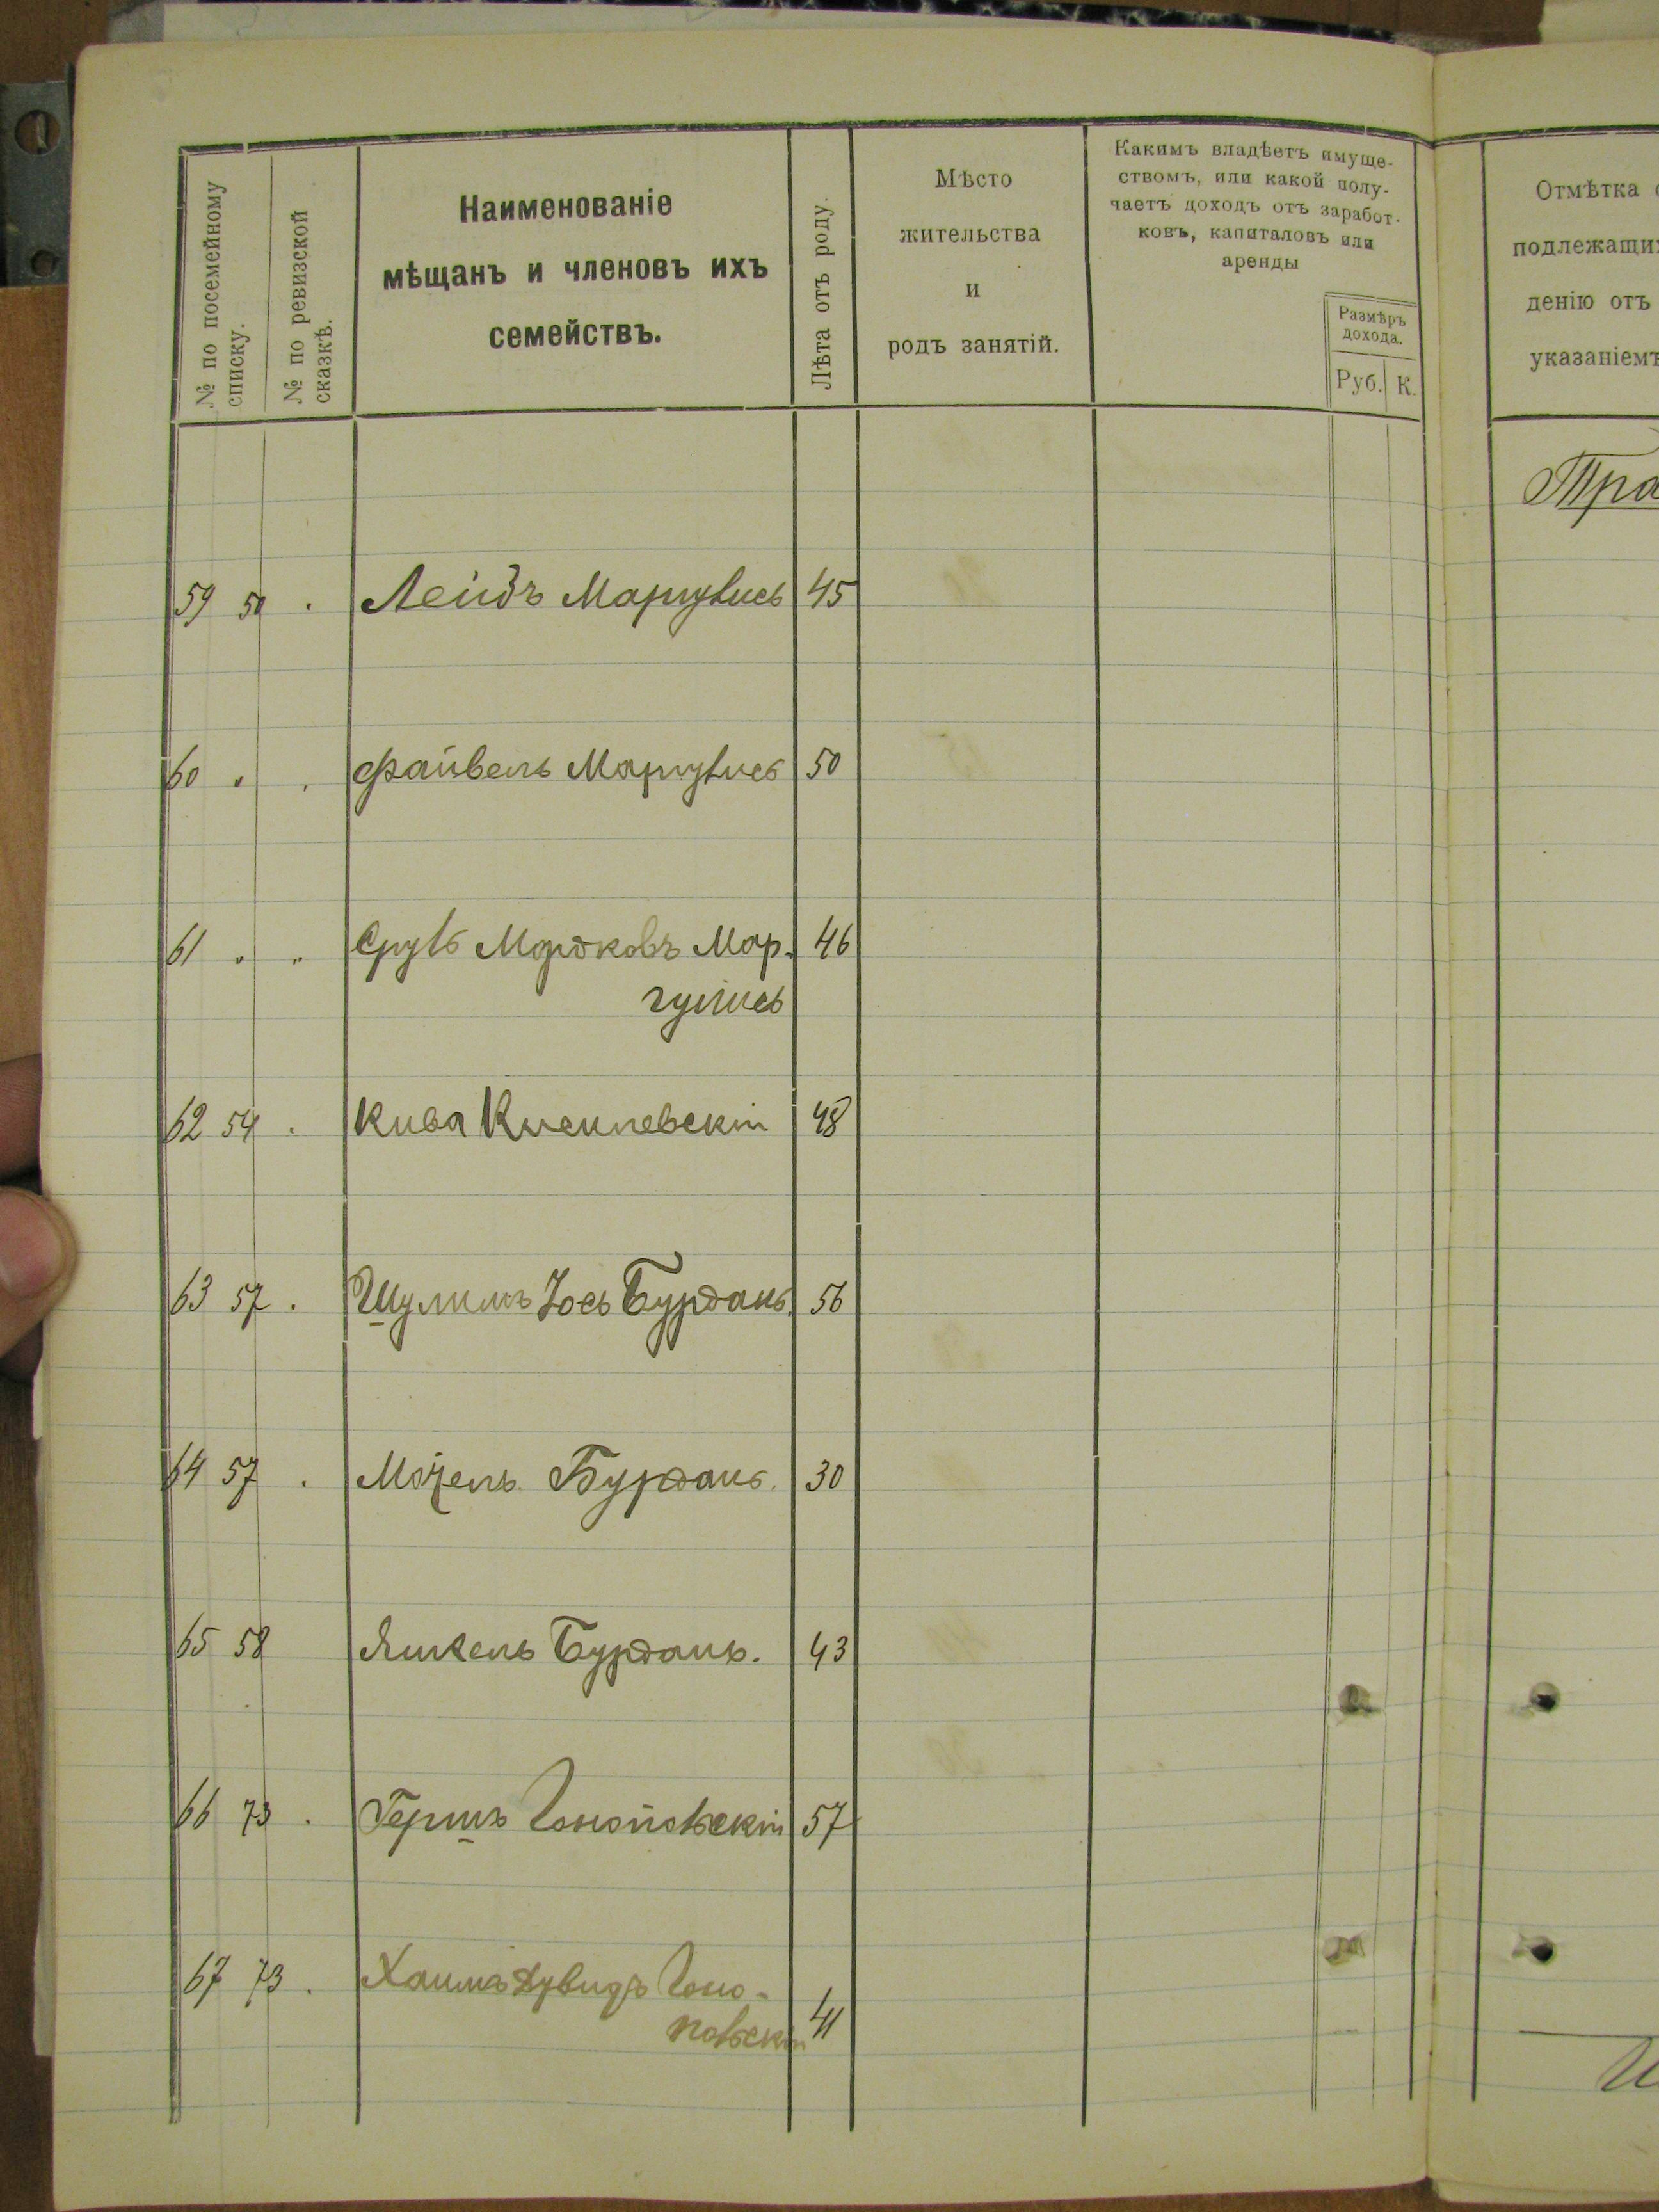 № по посемейному
списку.
№ по ревизской
сказкѣ.
Наименованіе
мѣщанъ и членовъ ихъ
семействъ.
Лѣта отъ роду.
Мѣсто
жительства
и
родъ занятій.
Какимъ владѣетъ имуще-
ствомъ, или какой полу-
чаетъ доходъ отъ заработ-
ковъ, капиталовъ или
аренды
Размѣръ
дохода.
Руб. К.
Отмѣтка
подлежащи
денію отъ
указаніемъ
Тра
59 50 Маргулисъ 45
60 Файвель Маргулисъ 50
61 Сруль Мордковъ Мар- 46
гулисъ
62 54 Кива Киселевскій 48
63 57 Шулимъ Іось Бурданъ. 56
64 57 Мотель Бурданъ. 30
65 58 Янкель Бурданъ. 43
66 73 Гершъ Конопольскій 57
67 73 Хаимъ Дувидъ Коно- 41
польскій